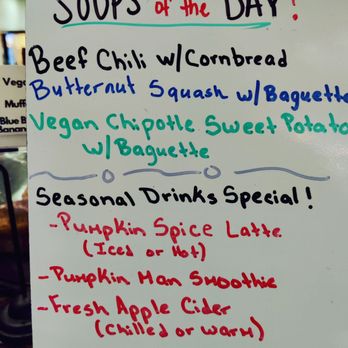 SOUPS of the DAY!
Beef Chili w/Cornbread
Butternut Squash w/Baguette
Vegan Chipotle Sweet Potato
w/Baguette
Seasonal Drinks Special!
-Pumpkin Spice Latte
(Iced or Hot)
-Pumpkin Man Smoothie
-Fresh Apple Cider
(Chilled or Warm)
Vega
Muffi
Blue B
Banan